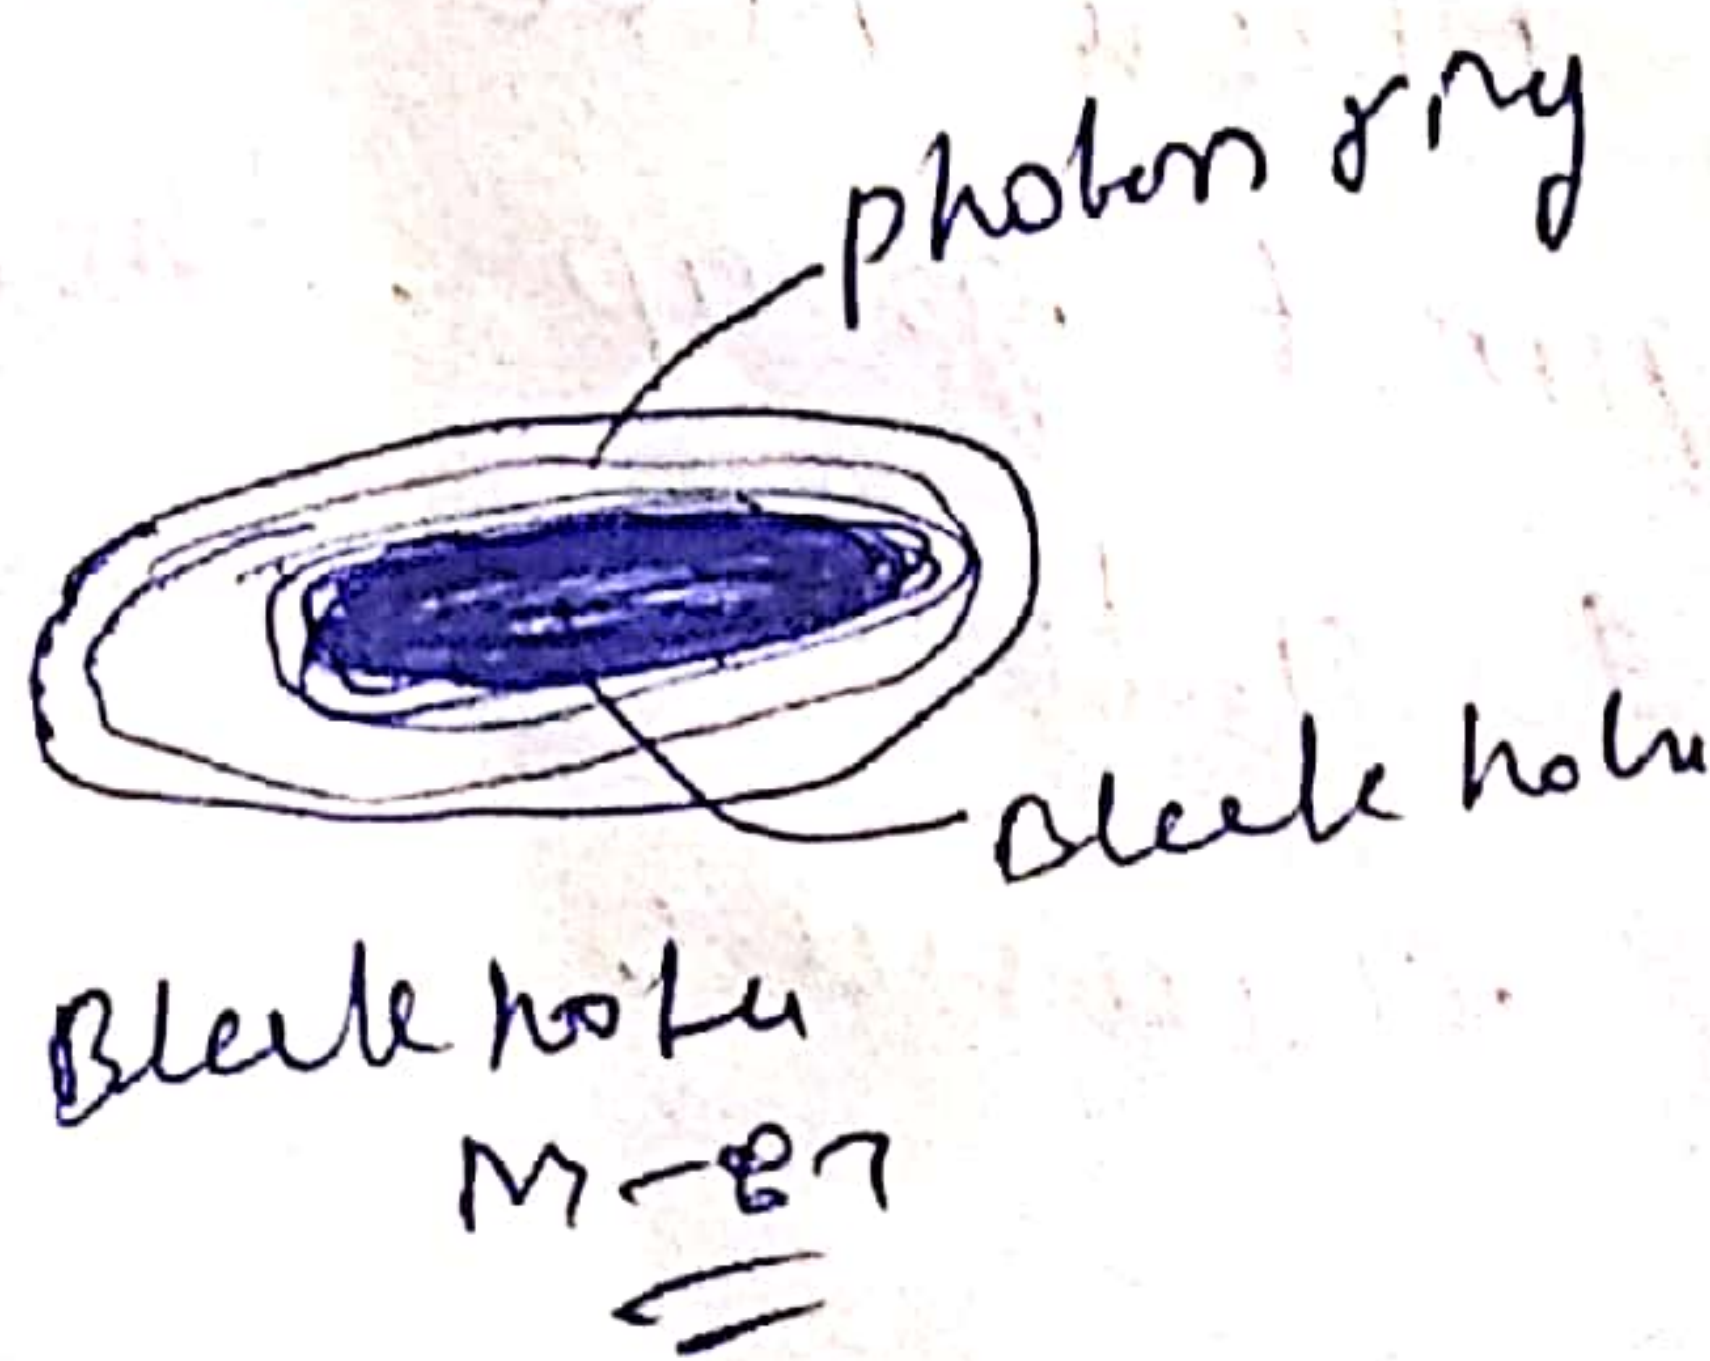 photon ring
Black hole
Black hole
M-87